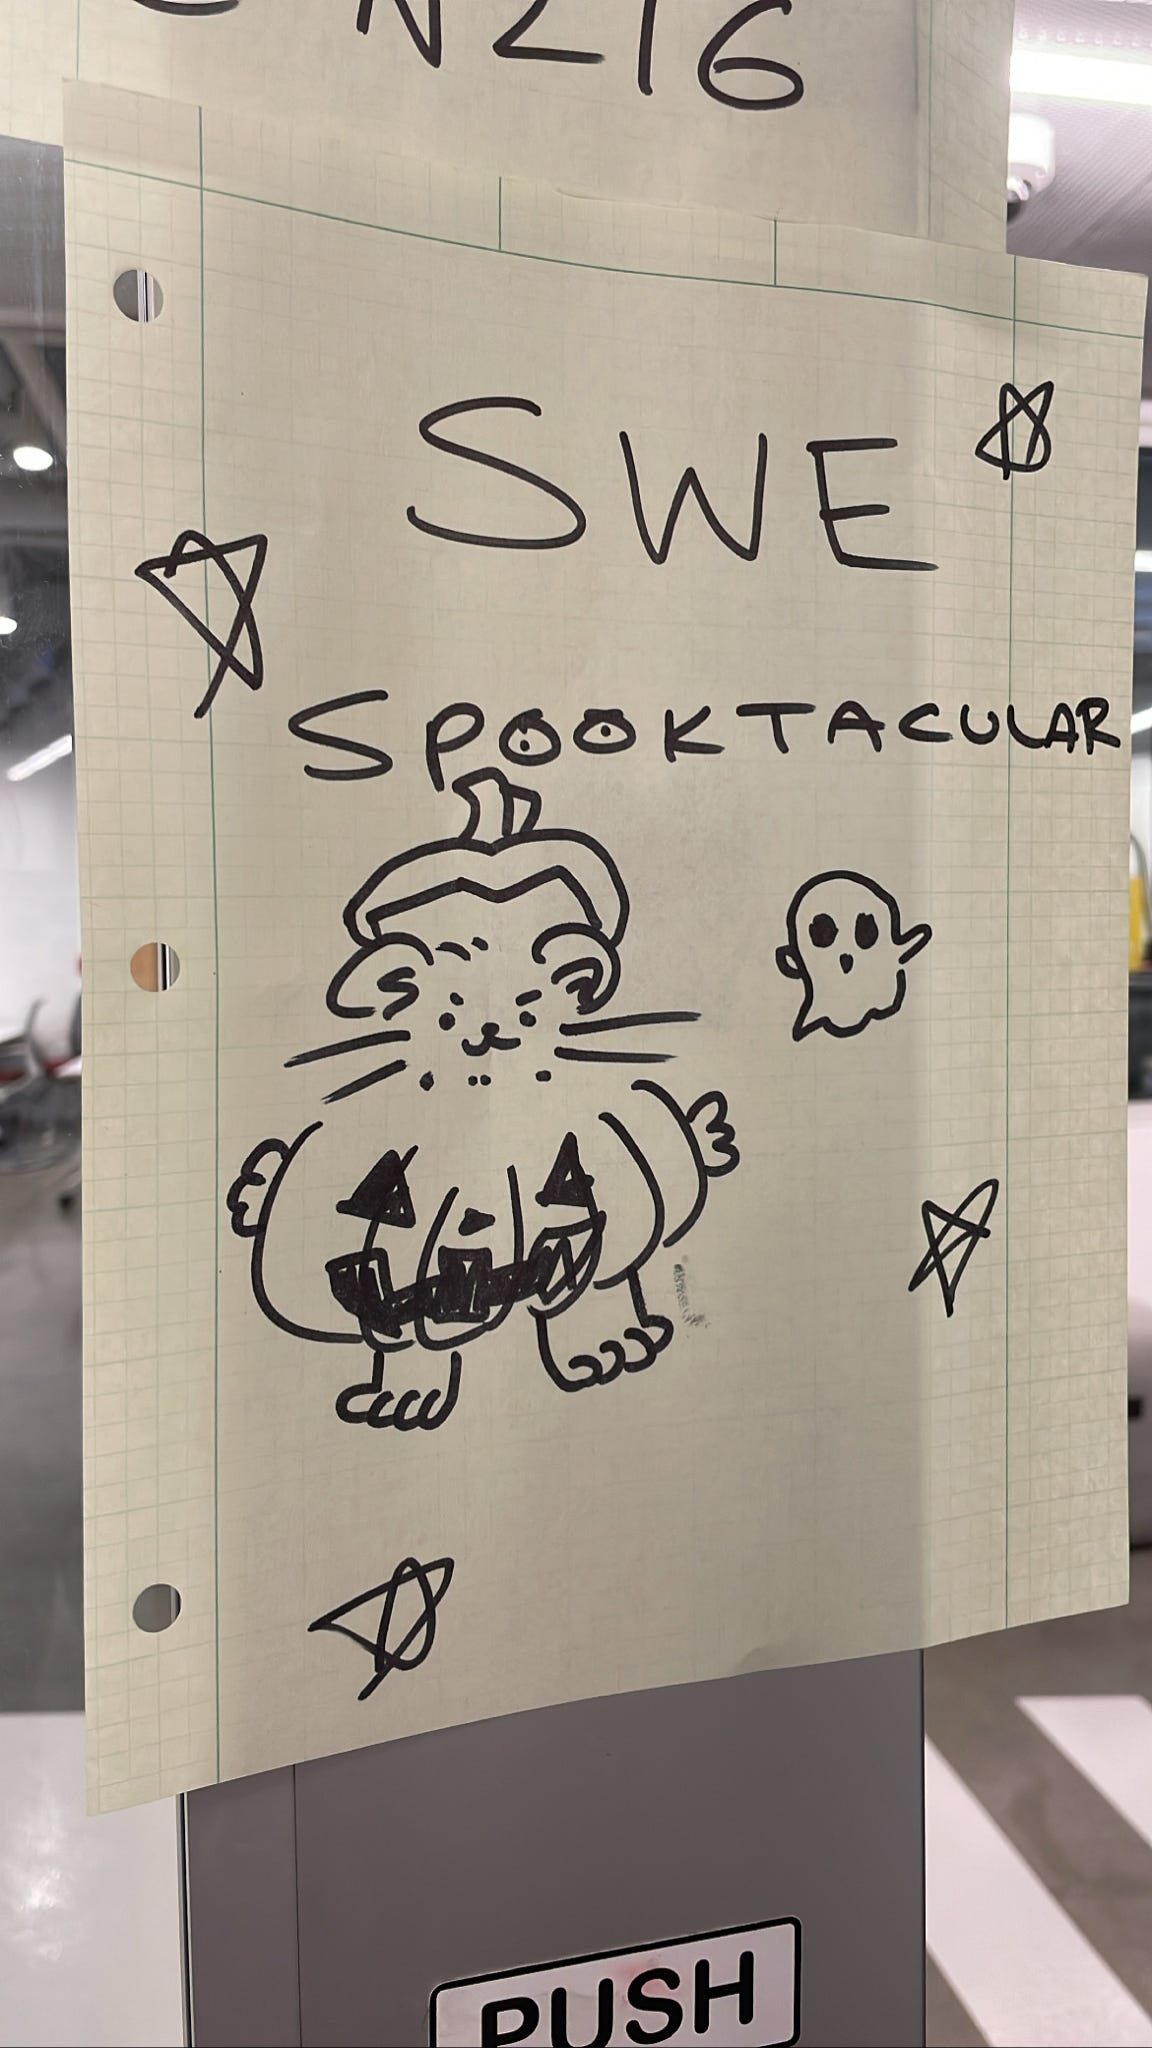 SWE
SPOOKTACULAR
PUSH